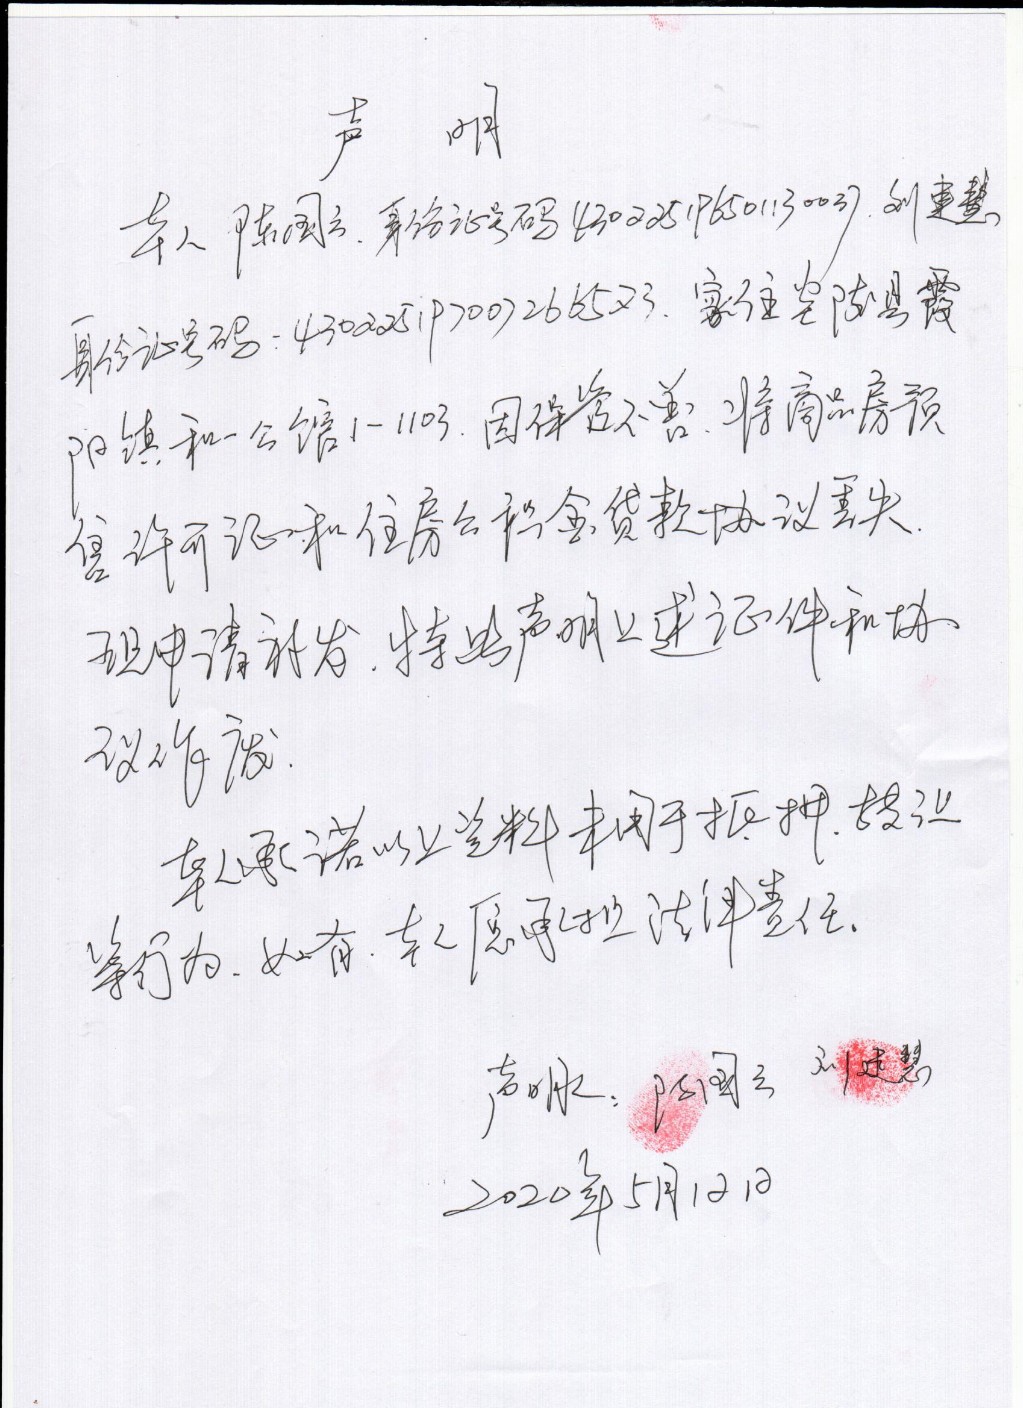 声 明
本人陈国云，身份证号码430225196501130037，刘建慧
身份证号码：430225197007266523，家住炎陵县霞
阳镇和一公馆1-1103，因保管不善，将商品房预
售许可证和住房公积金贷款协议丢失，
现申请补发，特此声明上述证件和协
议作废.
本人承诺以上资料未用于抵押、转让
等行为，如有，本人愿承担法律责任。
声明人：陈国云 刘建慧
2020年5月12日